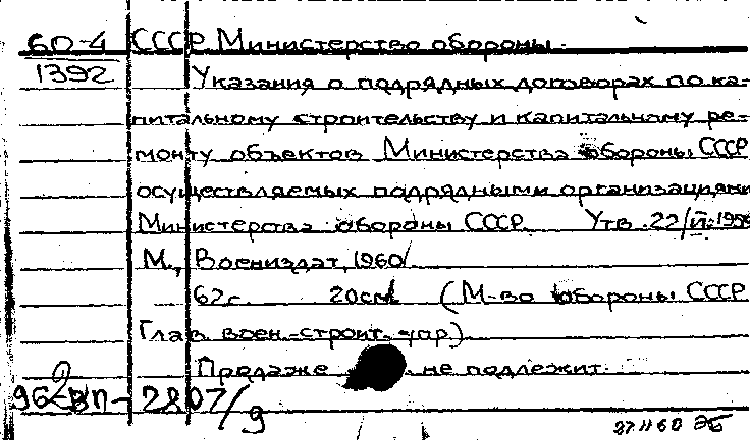 60-4 СССР. Министерство обороны.
1392 Указания о подрядных договорах по ка-
питальному строительству и капитальному ре-
монту объектов Министерства обороны СССР
осуществляемых подрядными организациями
Министерства обороны СССР. Утв. 22/II-1958
М., Воениздат, 1960
62с. 20см (М-во обороны СССР
Глав. воен.-строит. упр.)
Продаже не подлежит.
27 II 60